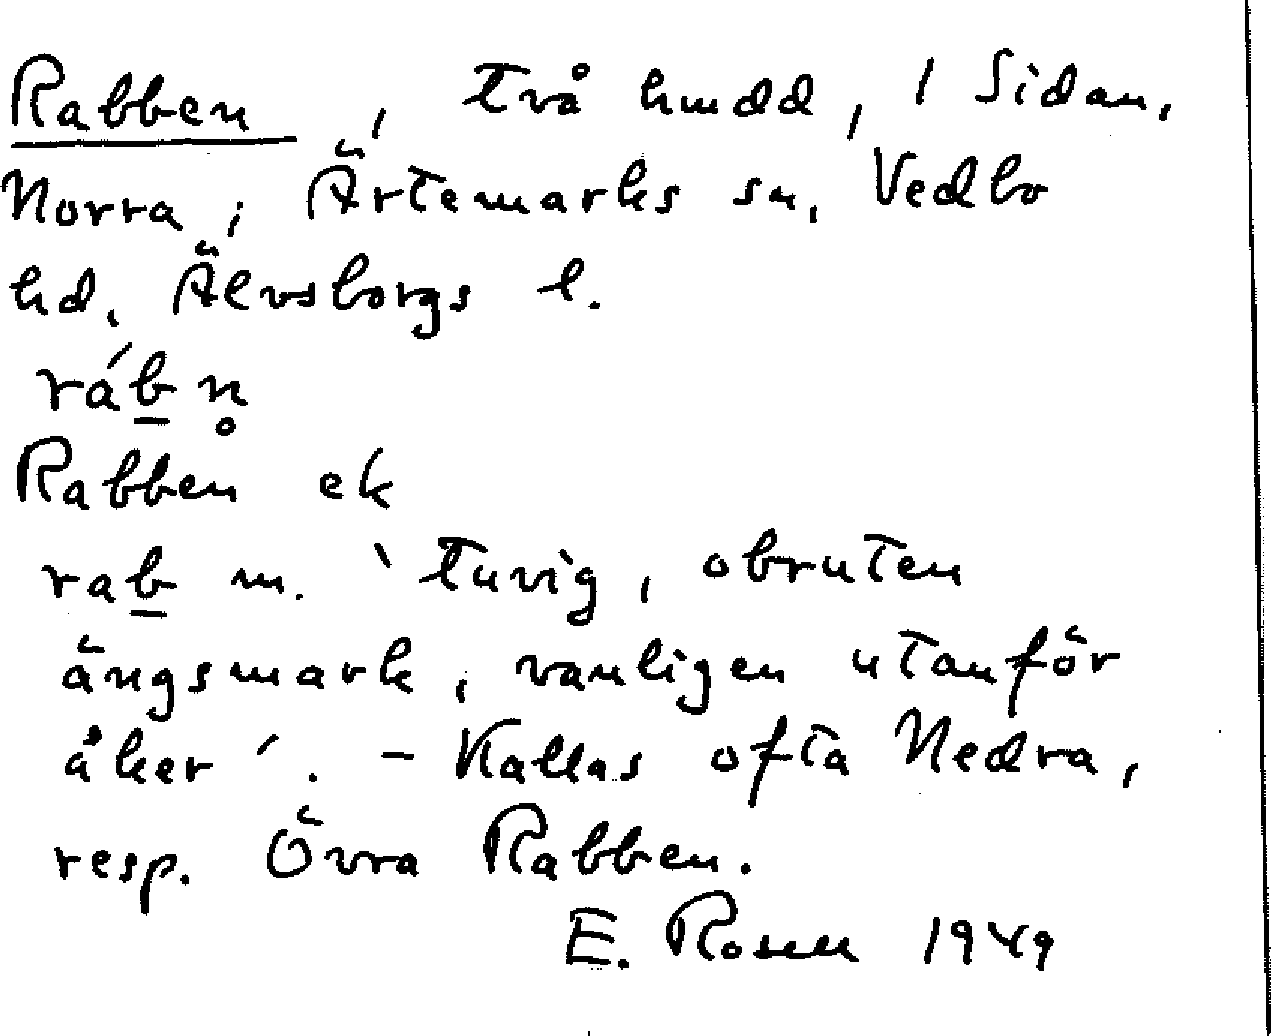 Rabben, två hmdd, 1 Sidan,
Norra, i Ärtemarks sn, Vedbo
hd, Älvsborgs l.
ráb̲n̥
Rabben ek
rab̲ m. `tuvig, obruten
ängsmark, vanligen utanför
åker´. - Kallas ofta Nedra,
resp. Övra Rabben.
E. Rosen 1949